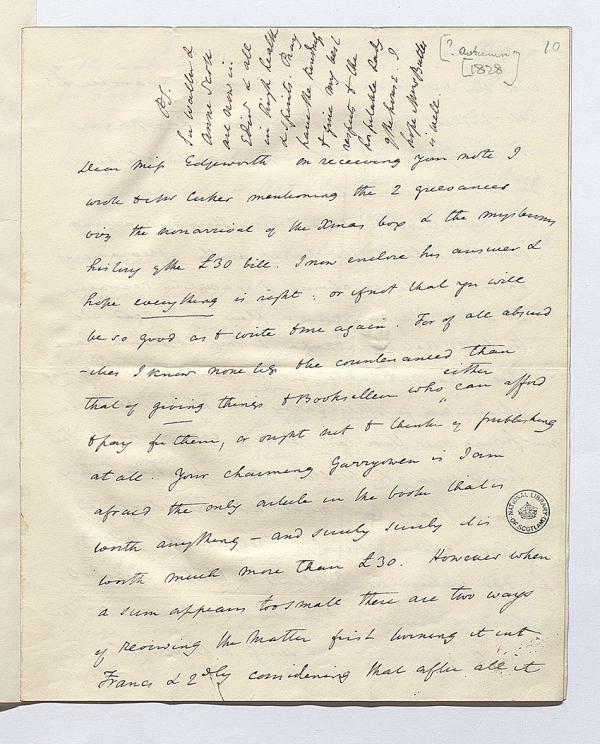 [? Autumn
1828]
10
PS.
Sir Walter &
Anne Scott
are now in
Edinr & all
in high health
& spirits. Pray
have the kindness
to give my best
respects to the
hospitable Lady
of the house. I
hope Mrs Butler
is well.
Dear Miss Edgeworth on receiving your note I
wrote to Mr Coker mentioning the 2 greivances
viz the nonarrival of the Xmas box & the mysterious
history of the £30 bill. I now enclose his answer &
hope everything is right: or if not that you will
be so good as to write to me again. For of all absurd
-ities I know none less to be countenanced than
that of giving things to Booksellers who either can afford
to pay for them, or ought not to think of publishing
at all. Your charming Garryowen is I am
afraid the only article in the book that is
worth anything – and surely surely it is
worth much more than £30. However when
a sum appears too small there are two ways
of reviewing the matter first turning it into
Francs & 2dly considering that after all it
NATIONAL LIBRARY OF SCOTLAND